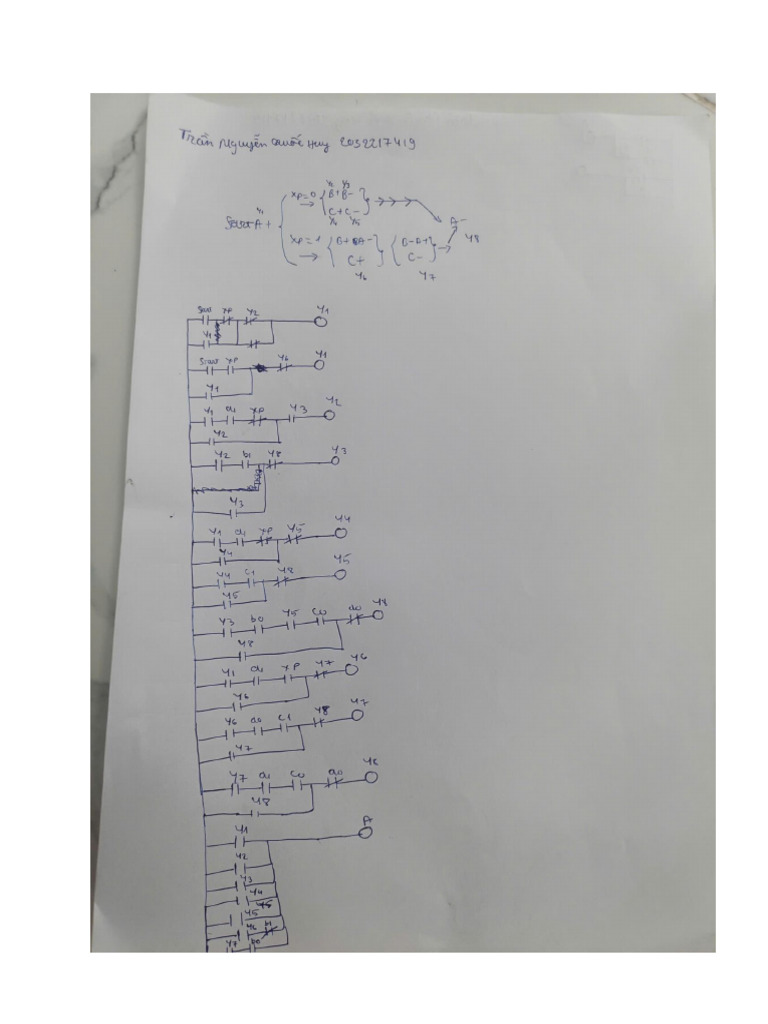 Trần Nguyễn Quốc Huy 2032217419
Y2 Y3
xp=0 B+B-
C+C-
Y4 Y5
Y1
Start A+ A-
Y8
xp=1 B+ A- B-A+
C+ C-
Y6 Y7
Start xp Y2 Y1
Y1
Start xp Y6 Y1
Y1
Y1 a1 xp Y3 Y2
Y2
Y2 b1 Y8 Y3
Y3
Y1 a1 xp Y5 Y4
Y4
Y4 c1 Y8 Y5
Y5
Y3 b0 Y5 c0 a0 Y8
Y8
Y1 a1 xp Y7 Y6
Y6
Y6 a0 c1 Y8 Y7
Y7
Y7 a1 c0 a0
Y8
Y1 A
Y2
Y3
Y4
Y5
Y6
Y7 b0